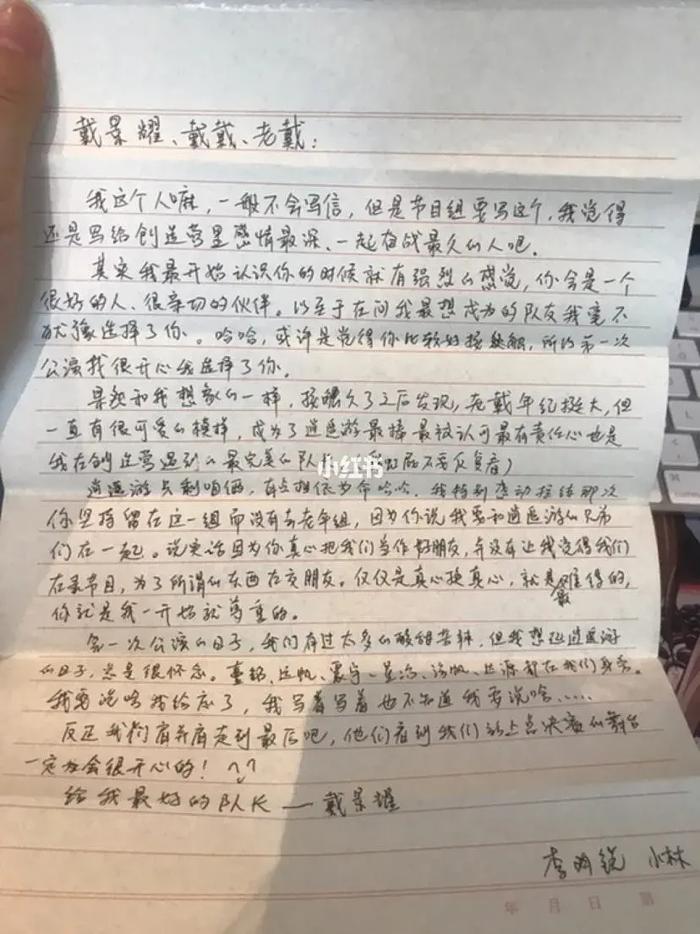 戴景耀、戴戴、老戴：
我这个人嘛，一般不会写信，但是节目组要写这个，我觉得
还是写给创造营里感情最深、一起奋战最久的人吧。
其实我最开始认识你的时候就有强烈的感觉，你会是一个
很好的人、很亲切的伙伴。以至于在问我最想成为的队友我毫不
犹豫选择了你。哈哈，或许是觉得你比较好接触，所以第一次
公演我很开心我选择了你。
果然和我想象的一样，接触久了之后发现，老戴年纪挺大，但
一直有很可爱的模样，成为了逍遥游最棒最被认可最有责任心也是
我在创造营遇到的最完美的队长 不要反负着）
小红书
逍遥游只剩咱俩，有点相依为命哈哈。我特别感动抉择那次
你坚持留在这一组而没有去老年组，因为你说我要和逍遥游的兄弟
们在一起。说实话因为你真心把我们当作好朋友，并没有让我觉得我们
在录节目，为了所谓的东西在交朋友。仅仅是真心换真心，就是最难得的，
你就是我一开始就尊重的。
第一次公演的日子，我们有过太多的酸甜苦辣，但我想起逍遥游
的日子，总是很怀念。 都在我们身旁。
我要说啥我给忘了，我写着写着也不知道我要说啥……
反正我们肩并肩走到最后吧，他们看到我们站上总决赛的舞台
一定会很开心的！^^
给我最好的队长 — 戴景耀
李 锐 小林
年 月 日 第